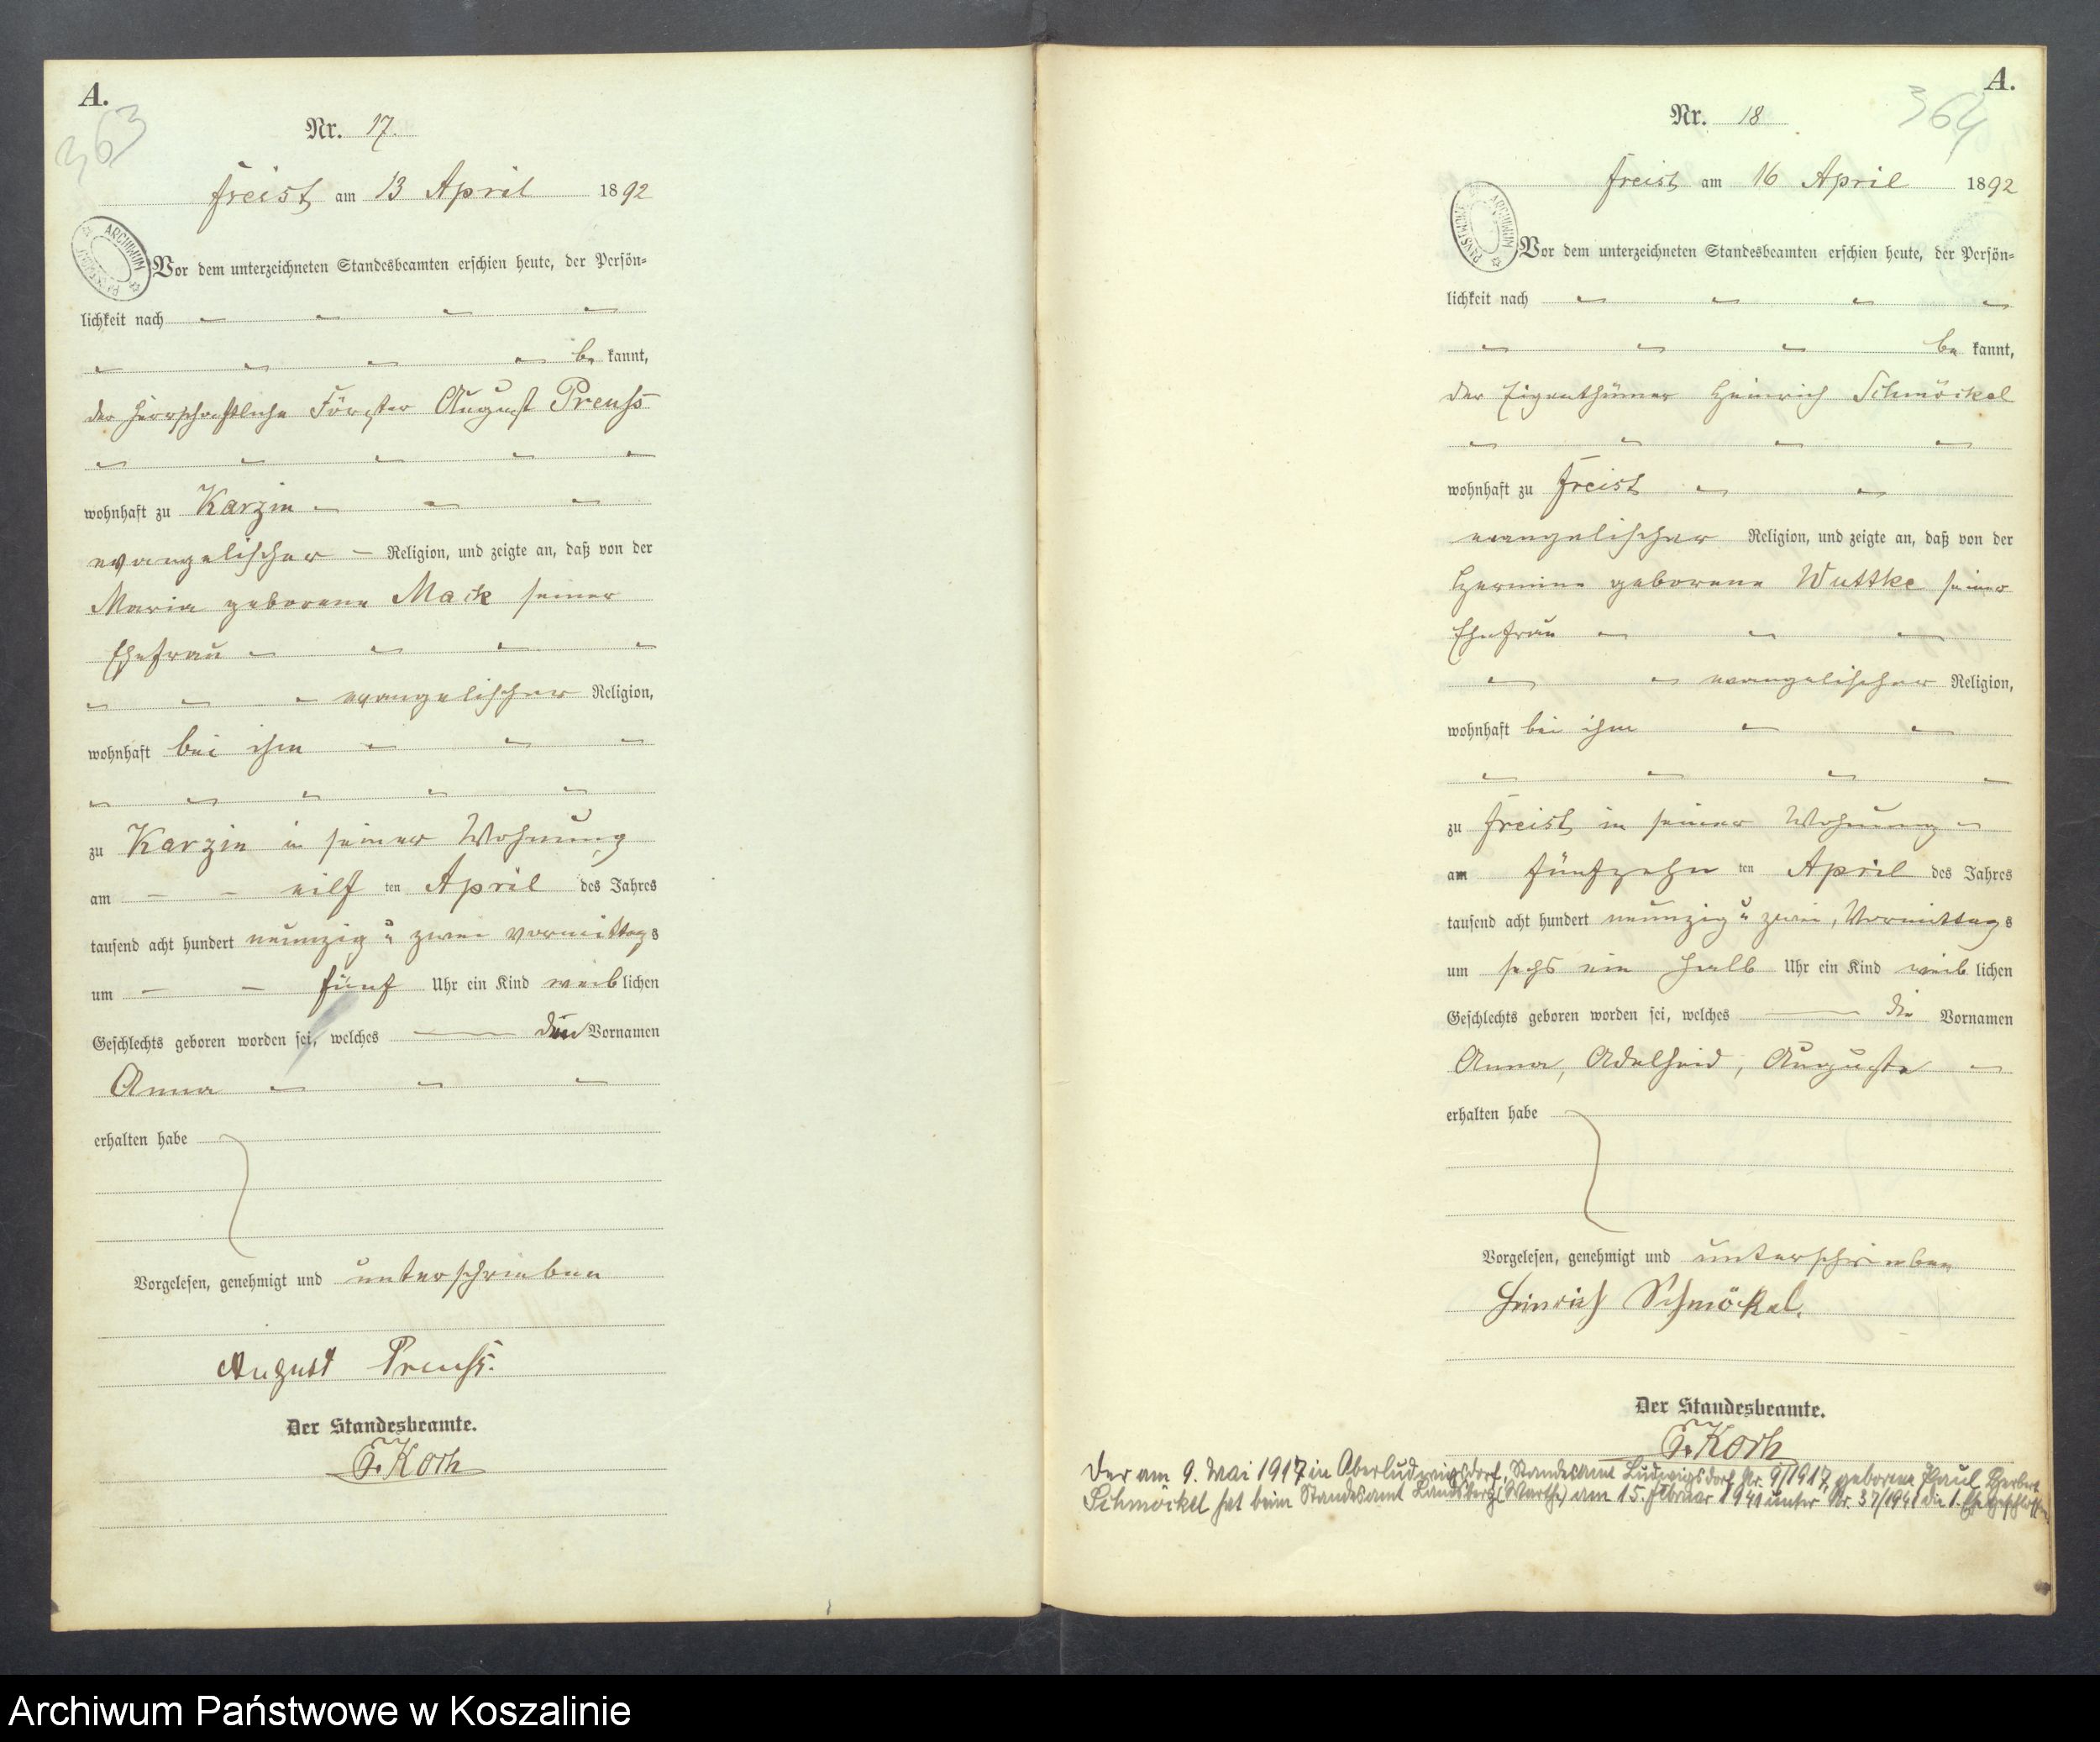 A.
363
Nr. 17.
Freist am 13 April 1892
ARCHIWUM
Vor dem unterzeichneten Standesbeamten erschien heute, der Persön-
lichkeit nach
be kannt,
der herrschaftliche Förster August Preuss
wohnhaft zu Karzin
evangelischer Religion, und zeigte an, daß von der
Maria geborene Mack seiner
Ehefrau
evangelischer Religion,
wohnhaft bei ihm
zu Karzin in seiner Wohnung
am eilf ten April des Jahres
tausend acht hundert neunzig u zwei vormittags
um fünf Uhr ein Kind weib lichen
Geschlechts geboren worden sei, welches den Vornamen
Anna
erhalten habe
Vorgelesen, genehmigt und unterschrieben
August Preuß.
Der Standesbeamte.
Koch
A.
364
Nr. 18
Freist am 16 April 1892
ARCHIWUM PAŃSTWOWE
Vor dem unterzeichneten Standesbeamten erschien heute, der Persön-
lichkeit nach
be kannt,
der Eigenthümer Heinrich Schmöckel
wohnhaft zu Freist
evangelischer Religion, und zeigte an, daß von der
Hermine geborene Wuttke seiner
Ehefrau
evangelischer Religion,
wohnhaft bei ihm
zu Freist in seiner Wohnung
am fünfzehn ten April des Jahres
tausend acht hundert neunzig u zwei, Vormittags
um sechs ein halb Uhr ein Kind weib lichen
Geschlechts geboren worden sei, welches die Vornamen
Anna, Adelheid, Auguste
erhalten habe
Vorgelesen, genehmigt und unterschrieben
Heinrich Schmöckel.
Der Standesbeamte.
Koch
Der am 9. Mai 1917 in Oberludwigsdorf, Standesamt Ludwigsdorf Nr. 9/1917 geborene Paul Herbert
Schmöckel hat beim Standesamt Landsberg (Warthe) am 15. Februar 1941 unter Nr. 37/1941 die 1. Ehe geschlossen
Archiwum Państwowe w Koszalinie